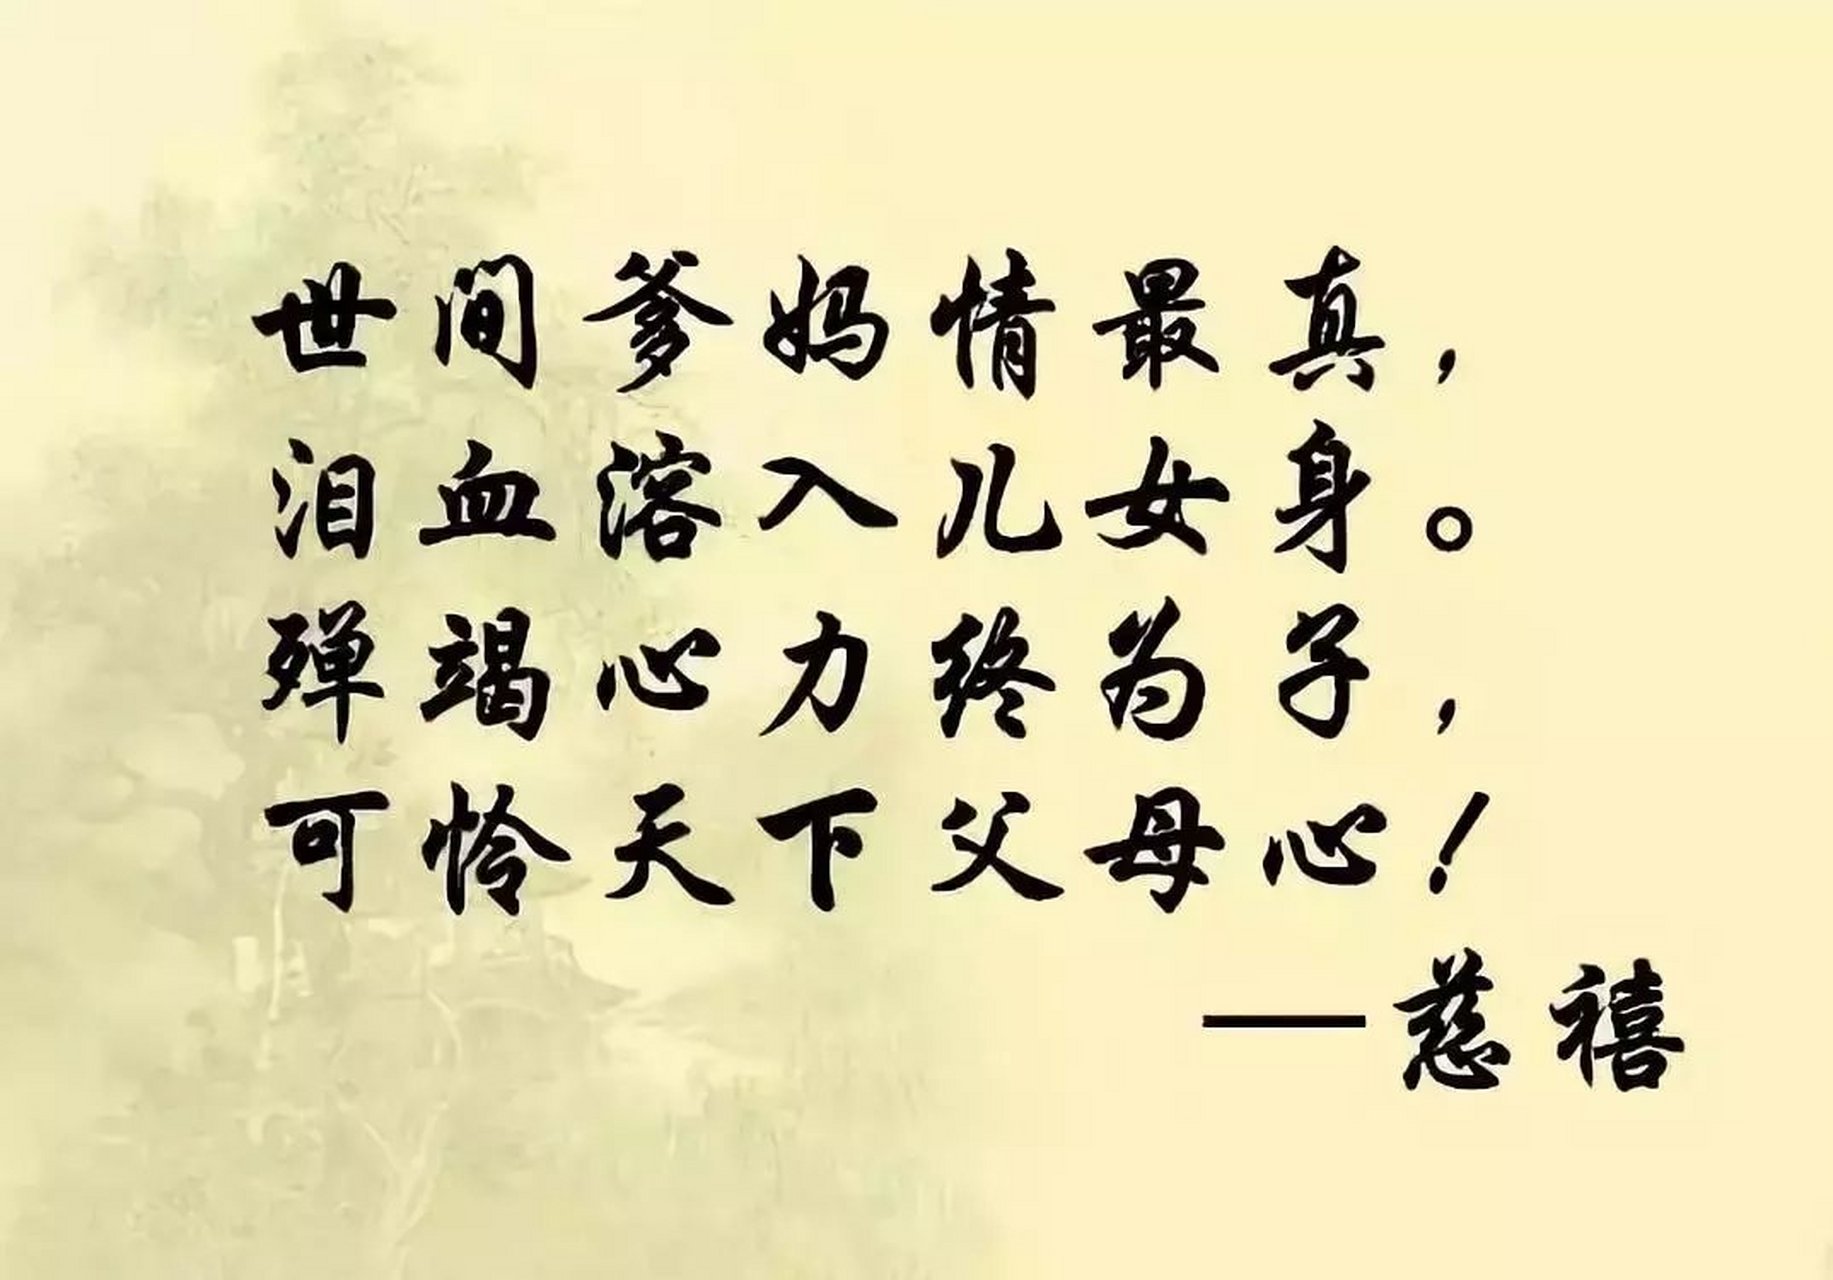 世间爹妈情最真，
泪血溶入儿女身。
殚竭心力终为子，
可怜天下父母心！
——慈禧